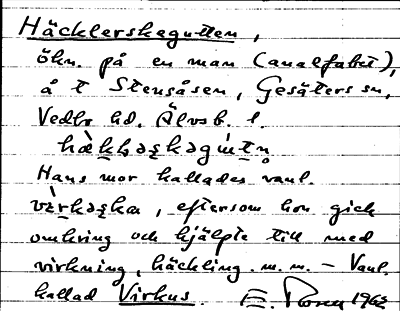 Häcklerskegutten,
ökn. på en man (analfabet),
å t Stensåsen, Gesäters sn,
Vedbo hd. Älvsb. l.
Hans mor kallades vanl.
vèrkəʂka, eftersom hon gick
omkring och hjälpte till med
virkning, häckling m.m. – Vanl.
kallad Virkus. E. Rosen 1962